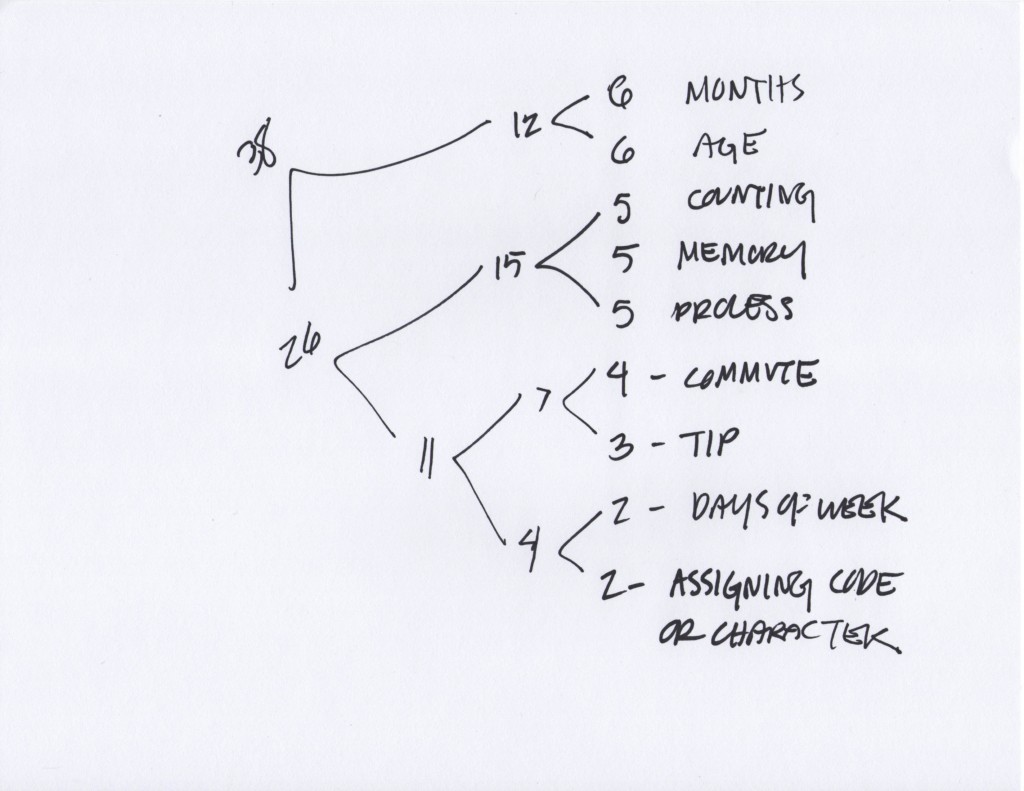 6 MONTHS
38
12
6 AGE
5 COUNTING
15
5 MEMORY
5 PROCESS
26
7
4 - COMMUTE
11
3 - TIP
4
2 - DAYS OF WEEK
2 - ASSIGNING CODE
OR CHARACTER